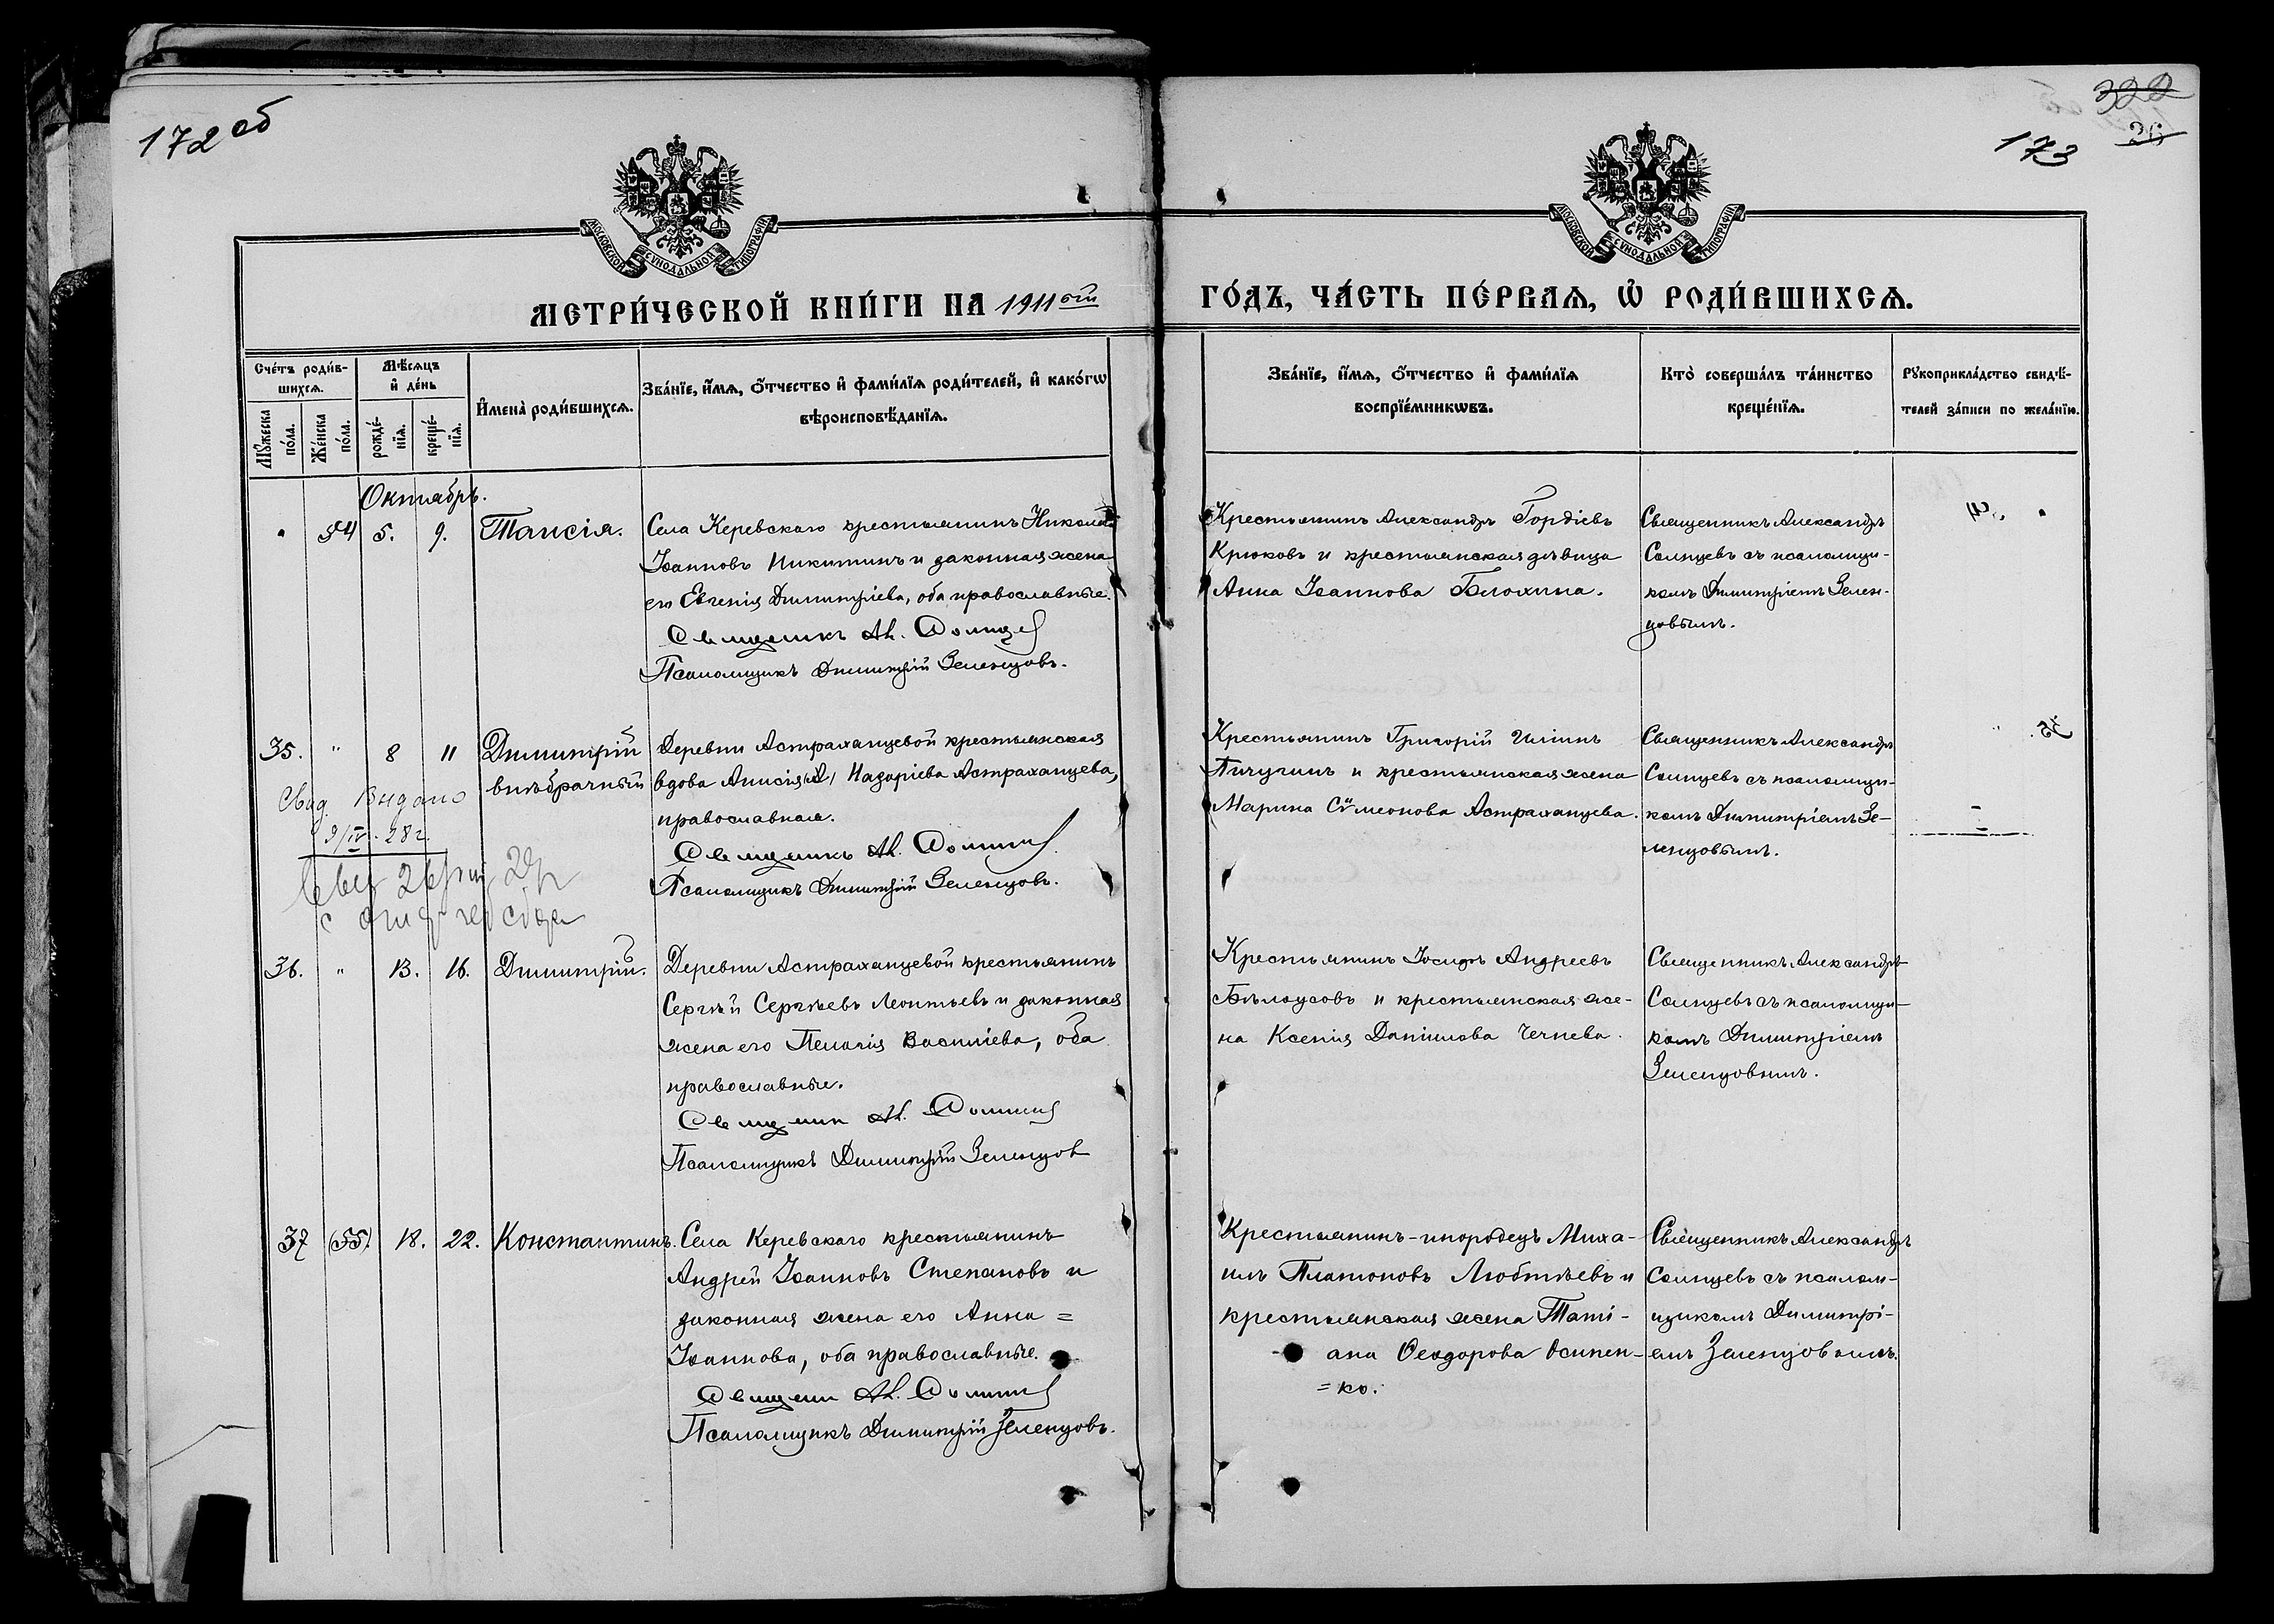 172 об
322
173
26
МОСКОВСКОЙ СѴНОДАЛЬНОЙ ТИПОГРАФІИ
МОСКОВСКОЙ СѴНОДАЛЬНОЙ ТИПОГРАФІИ
МЕТРИ́ЧЕСКОЙ КНИ́ГИ НА 1911ый
ГО́ДЪ, ЧА́СТЬ ПЕ́РВАѦ, Ѿ РОДИ́ВШИХСѦ.
Сче́тъ роди́в-
шихсѧ.
Мꙋ́жеска
по́ла.
Же́нска
по́ла.
Мѣ́сѧцъ
и҆ де́нь
рожде́-
нїѧ.
креще́-
нїѧ.
И҆мена̀ роди́вшихсѧ.
Зва́нїе, и҆́мѧ, ѻ҆́тчество и҆ фами́лїѧ роди́телей, и҆ како́гѡ
вѣроисповѣ́данїѧ.
Зва́нїе, и҆́мѧ, ѻ҆́тчество и҆ фами́лїѧ
воспрїе́мникѡвъ.
Кто̀ соверша́лъ та́инство
креще́нїѧ.
Рꙋкоприкла́дство свидѣ́-
телей за́писи по жела́нїю.
Октябрь.
" 54 5. 9. Таисія.
Села Керевскаго крестьянинъ Николай
Іоанновъ Никитинъ и законная жена
его Евгенія Димитріева, оба православные.
Священникъ Ал. Солнцев
Псаломщикъ Димитрій Зеленцовъ.
Крестьянинъ Александръ Гордіевъ
Крюковъ и крестьянская дѣвица
Анна Іоаннова Блохина.
Священникъ Александръ
Солнцевъ съ псаломщи-
комъ Димитріемъ Зелен-
цовымъ.
35. " 8 11 Димитрій
внѣбрачный
Деревни Астраханцевой крестьянская
вдова Анисія Назаріева Астраханцева,
православная.
Священникъ Ал. Солнцев
Псаломщикъ Димитрій Зеленцовъ.
Свид. Выдано
9/IV-28 г.
Крестьянинъ Григорій Иліинъ
Пичугинъ и крестьянская жена
Марина Сѵмеонова Астраханцева.
Священникъ Александръ
Солнцевъ съ псаломщи-
комъ Димитріемъ Зе-
ленцовымъ.
36. " 13. 16. Димитрій.
Деревни Астраханцевой крестьянинъ
Сергѣй Сергѣевъ Леонтьевъ и законная
жена его Пелагія Василіева, оба
православные.
Священник Ал. Солнцев
Псаломщикъ Димитрій Зеленцов
Крестьянинъ Іосифъ Андреевъ
Бѣлоусовъ и крестьянская же-
на Ксенія Даніилова Чернева.
Священникъ Александръ
Солнцевъ съ псаломщи-
комъ Димитріемъ
Зеленцовымъ.
37 (55). 18. 22. Константинъ.
Села Керевскаго крестьянинъ
Андрей Іоанновъ Степановъ и
законная жена его Анна =
Іоаннова, оба православные.
Священ Ал. Солнцев
Псаломщикъ Димитрій Зеленцовъ.
Крестьянинъ-инородецъ Миха-
илъ Платоновъ Любтѣевъ и
крестьянская жена Таті-
ана Ѳеодорова Осипен-
=ко.
Священникъ Александръ
Солнцевъ съ псалом-
щикомъ Димитрі-
емъ Зеленцовымъ.